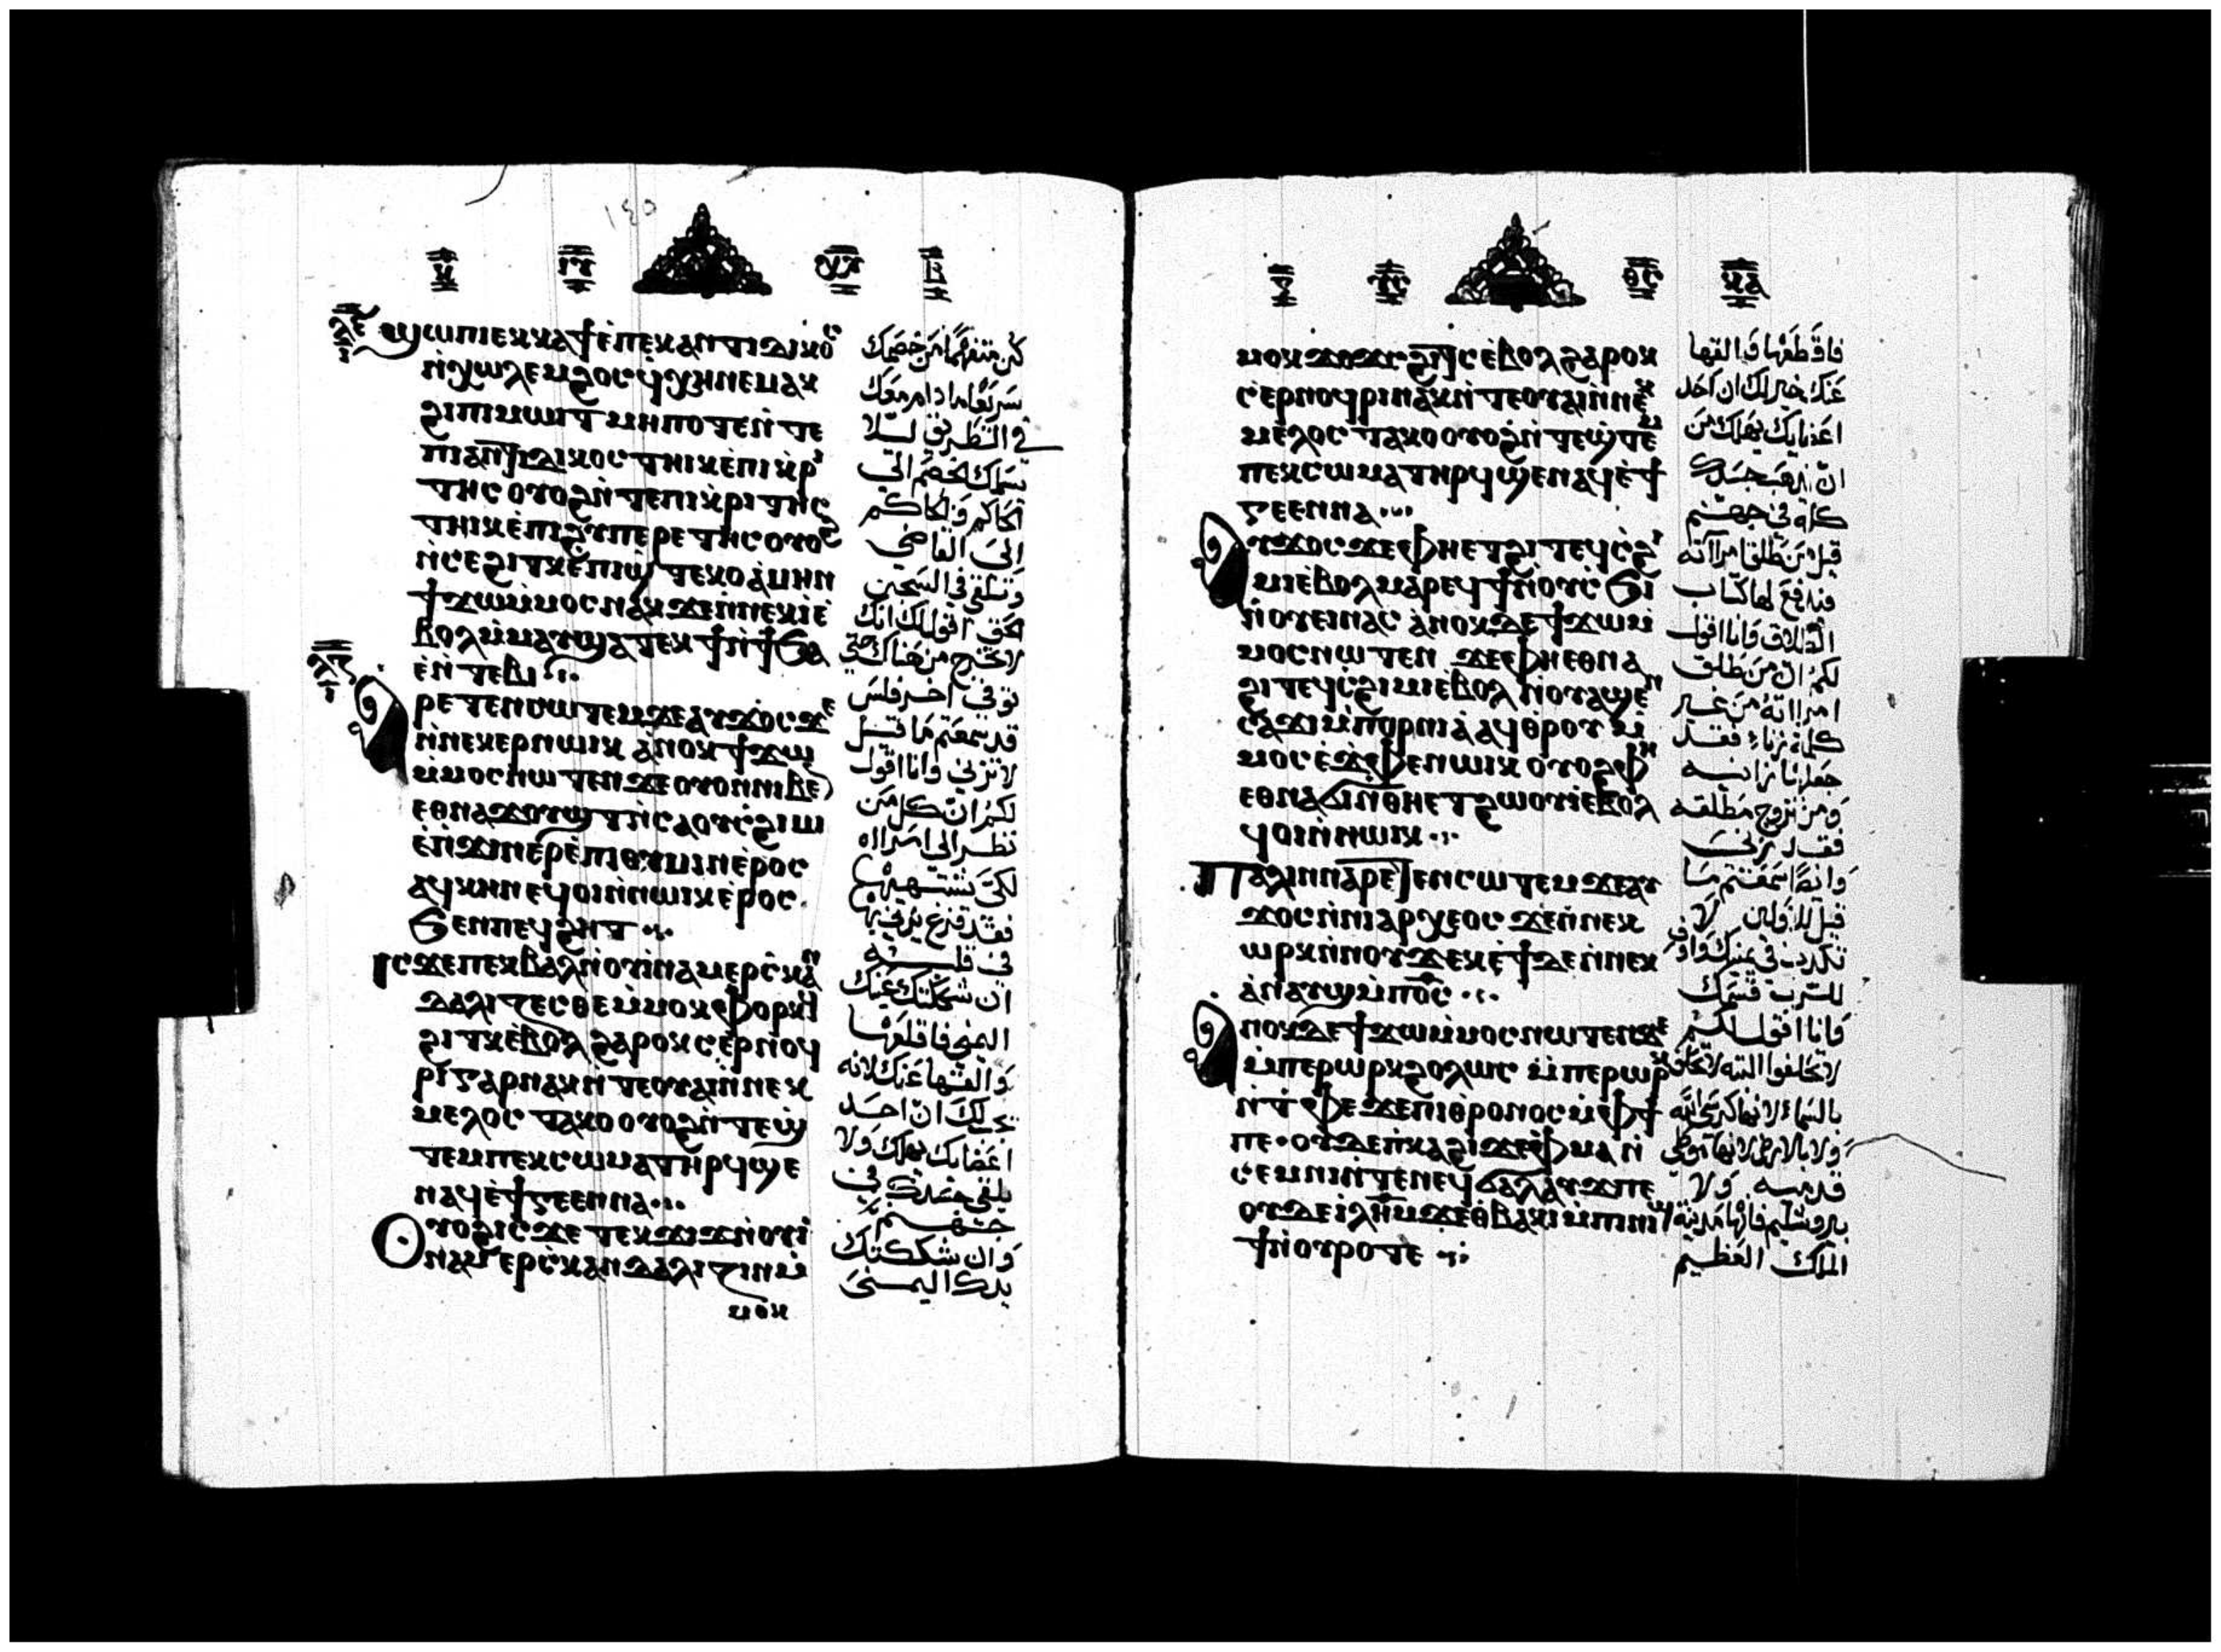 ١٤٥
ϣⲱⲡⲓ ⲉⲕⲕⲁϯ ⲉ̇ⲡⲉⲕⲁⲛⲧⲓⲇⲓⲕⲟⲥ
ⲛ̇ⲭⲱⲗⲉⲙ ϩⲟⲥ ϥⲭⲏ ⲛⲉⲙⲁⲕ
ϩⲓ ⲡⲓⲙⲱⲓⲧ ⲙⲏⲡⲟⲧⲉ ⲛ̇ⲧⲉ
ⲡⲓⲁⲛⲧⲓⲇⲓⲕⲟⲥ ⲧⲏⲓⲕ ⲉ̇ⲡⲓⲕ̇ⲣⲓ
ⲧⲏⲥ ⲟⲩⲟϩ ⲛ̇ⲧⲉ ⲡⲓⲕ̇ⲣⲓⲧⲏⲥ
ⲧⲏⲓⲕ ⲉ̇ⲡⲓϩⲩⲡⲉⲣⲉⲧⲏⲥ ⲟⲩⲟϩ
ⲛ̇ⲥⲉϩⲓⲧⲕ ⲉ̇ⲡⲓϣ̇ⲧⲉⲕⲟ ⲁ̇ⲙⲏⲛ
ϯϫⲱ ⲙ̇ⲙⲟⲥ ⲛⲁⲕ ϫⲉ ⲛ̇ⲛⲉⲕⲓ̇ ⲉ̇
ⲃⲟⲗ ⲙ̇ⲙⲁⲩ ϣⲁⲧⲉⲕϯ ⲛ̇ϯϧⲁ
ⲉ̇ ⲛ̇ⲧⲉⲃⲓ
ⲁⲣⲉⲧⲉⲛⲥⲱⲧⲉⲙ ϫⲉ ⲁⲩϫⲟⲥ ϫⲉ
ⲛ̇ⲛⲉⲕⲉⲣⲛⲱⲓⲕ ⲁ̇ⲛⲟⲕ ϯϫⲱ
ⲙ̇ⲙⲟⲥ ⲛⲱⲧⲉⲛ ϫⲉ ⲟⲩⲟⲛ ⲛⲓⲃⲉⲛ
ⲉⲑⲛⲁϫⲟⲩϣⲧ ⲛ̇ⲥⲁ ⲟⲩⲥ̇ϩⲓⲙⲓ
ⲉ̇ⲡ̇ϫⲓⲛⲉⲣⲉ̇ⲡⲓⲑⲩⲙⲓⲛ ⲉ̇ⲣⲟⲥ
ⲁϥⲕⲏⲛ ⲉϥⲟⲓ ⲛ̇ⲛⲱⲓⲕ ⲉ̇ⲣⲟⲥ
ϧⲉⲛ ⲡⲉϥϩⲏⲧ
ⲓⲥϫⲉ ⲡⲉⲕⲃⲁⲗ ⲛ̇ⲟⲩⲓ̇ⲛⲁⲙ ⲉⲣⲥ̇ⲕⲁⲛ
ⲇⲁⲗⲓⲍⲉⲥⲑⲉ ⲙ̇ⲙⲟⲕ ⲫⲟⲣⲕϥ
ϩⲓⲧϥ ⲉ̇ⲃⲟⲗ ϩⲁⲣⲟⲕ ⲥⲉ̇ⲣⲛⲟϥ
ⲣⲓ ⲅⲁⲣ ⲛⲁⲕ ⲛ̇ⲧⲉ ⲟⲩⲁⲓ ⲛ̇ⲛⲉⲕ
ⲙⲉⲗⲟⲥ ⲧⲁⲕⲟ ⲟⲩⲟϩ ⲛ̇ⲧⲉϣ̇
ⲧⲉⲙ ⲡⲉⲕⲥⲱⲙⲁ ⲧⲏⲣϥ ϣⲉ
ⲛⲁϥ ⲉ̇ϯⲅⲉⲉⲛⲛⲁ
ⲟⲩⲟϩ ⲓⲥϫⲉ ⲧⲉⲕϫⲓϫ ⲛ̇ⲟⲩⲓ̇
ⲛⲁⲙ ⲉⲣⲥ̇ⲕⲁⲛⲇⲁⲗⲓⲍⲓⲛ ⲙ̇
ⲙⲟⲕ
كن متفهمًا من خصمك
سريعًا ما دام معك
في الطريق ليلا
يسلمك الخصم الي
الحاكم والحاكم
الي القاضي
وتلقي في السجن
الحق اقول لك انك
لا تخرج من هناك حتي
توفي اخر فلس
قد سمعتم ما قيل
لا تزني وانا اقول
لكم ان كل من
نظر الي امراه
لكي يشتهيها
فقد فرغ يزني بها
في قلبه
ان شككتك عينك
اليمني فاقلعها
والقيها عنك لانه
خير لك ان احد
اعضايك يهلك ولا
يلقي جسدك في
جهنم
وان شككتك
يدك اليمني
ⲙⲟⲕ ϫⲟϫⲥ ϩⲓⲧⲥ ⲉ̇ⲃⲟⲗ ϩⲁⲣⲟⲕ
ⲥⲉ̇ⲣⲛⲟϥⲣⲓ ⲛⲁⲕ ⲛ̇ⲧⲉ ⲟⲩⲁⲓ ⲛ̇ⲛⲉⲕ
ⲙⲉ̇ⲗⲟⲥ ⲧⲁⲕⲟ ⲟⲩⲟϩ ⲛ̇ⲧⲉϣ̇ⲧⲉⲙ
ⲡⲉⲕⲥⲱⲙⲁ ⲧⲏⲣϥ ϣⲉ ⲛⲁϥ ⲉ̇ϯ
ⲅⲉⲉⲛⲛⲁ
ⲁⲩϫⲟⲥ ϫⲉ ⲫⲏⲉⲧϩⲓ ⲧⲉϥⲥ̇ϩⲓ
ⲙⲓ ⲉ̇ⲃⲟⲗ ⲙⲁⲣⲉϥϯ ⲛ̇ⲟⲩⲥ̇ϧⲓ
ⲛ̇ⲟⲩⲉⲓ ⲛⲁⲥ ⲁ̇ⲛⲟⲕ ⲇⲉ ϯϫⲱ ⲙ̇
ⲙⲟⲥ ⲛⲱⲧⲉⲛ ϫⲉ ⲫⲏⲉⲑⲛⲁ
ϩⲓ ⲧⲉϥⲥ̇ϩⲓⲙⲓ ⲉ̇ⲃⲟⲗ ⲛ̇ⲟⲩⲉϣⲉⲛ
ⲥⲁϫⲓ ⲙ̇ⲡⲟⲣⲛⲓⲁ̇ ⲁϥⲑⲣⲟⲩ ⲙ̇
ⲙⲟⲥ ⲉ̇ϫⲫⲉ ⲛⲱⲓⲕ ⲟⲩⲟϩ ⲫⲏ
ⲉⲑⲛⲁϭⲓ ⲛ̇ⲑⲏⲉⲧϩⲱⲟⲩⲓ ⲉ̇ⲃⲟⲗ
ϥⲟⲓ ⲛ̇ⲛⲱⲓⲕ
ⲡⲁⲗⲓⲛ ⲛⲁⲣⲉⲧⲉⲛⲥⲱⲧⲉⲙ ϫⲉ ⲁⲩ
ϫⲟⲥ ⲛ̇ⲛⲓⲁⲣⲭⲉⲟⲥ ϫⲉ ⲛ̇ⲛⲉⲕ
ⲱⲣⲕ ⲛ̇ⲛⲟⲩϫ ⲉⲕⲉ̇ϯ ⲇⲉ ⲛ̇ⲛⲉⲕ
ⲁ̇ⲛⲁⲩϣ ⲙ̇ⲡϭⲟⲓⲥ
ⲁⲛⲟⲕ ⲇⲉ ϯϫⲱ ⲙ̇ⲙⲟⲥ ⲛⲱⲧⲉⲛ ϫⲉ
ⲙ̇ⲡⲉⲣⲱⲣⲕ ϩⲟⲗⲱⲥ ⲙ̇ⲡⲉⲣⲱⲣⲕ
ⲛ̇ⲧ̇ⲫⲉ ϫⲉ ⲡⲓⲑⲣⲟⲛⲟⲥ ⲙ̇ⲫϯ
ⲡⲉ · ⲟⲩⲇⲉ ⲡ̇ⲕⲁϩⲓ ϫⲉ ⲫⲙⲁ ⲛ̇
ⲥⲉⲙⲛⲓ ⲛ̇ⲧⲉ ⲛⲉϥϭⲁⲗⲁⲩϫ ⲡⲉ
ⲟⲩⲇⲉ ⲓ̇ⲗⲏⲙ ϫⲉ ⲑ̇ⲃⲁⲕⲓ ⲙ̇ⲡⲓⲛⲓϣ
ϯ ⲛ̇ⲟⲩⲣⲟ ⲧⲉ
فاقطعها والقها
عنك خير لك ان احد
اعضايك يهلك من
ان يذهب جسدك
كله في جهنم
قيل من طلق امراته
فيدفع لها كتاب
الطلاق وانا اقول
لكم ان من طلق
امراته من غير
كلمة زناء فقد
جعلها زانيه
ومن تزوج مطلقه
فقد زني
وايضًا سمعتم ما
قيل للاولين لا
تكذب في يمينك واوف
للرب قسمك
وانا اقول لكم
لا تحلفوا البته لا تحلف
بالسماء لانها كرسي الله
ولا بالارض لانها موطي
قدميه ولا
بيروشليم فانها مدينة
الملك العظيم